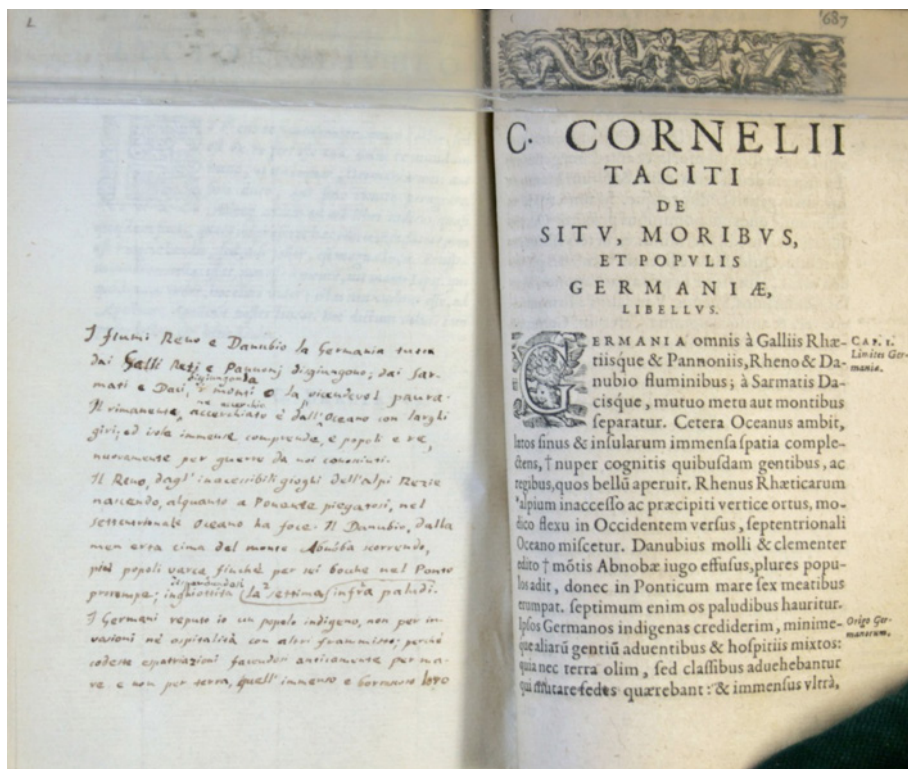 I fiumi Reno e Danubio la Germania tutta
dai Galli Reti e Pannonj disgiungono; dai Sar-
mati e Daci, i monti o la vicendevol paura.
disgiungonla
Il rimanente, accerchiato è dall' Oceano con larghi
ne accerchia
giri; ed isole immense comprende, e popoli e re,
nuovamente per guerra da noi conosciuti.
Il Reno, dagl' inaccessibili gioghi dell'alpi Rezie
nascendo, alquanto a Ponente piegatosi, nel
settentrionale Oceano ha foce. Il Danubio, dalla
men erta cima del monte Abnoba scorrendo,
più popoli varca finchè per sei bocche nel Ponto
prorompe; inghiottita la settima infra paludi.
I Germani reputo io un popolo indigeno, non per in-
vasioni nè ospitalità con altri frammisto; perchè
codeste espatriazioni facendosi anticamente per ma-
re e non per terra, quell' immenso e
687
C. CORNELII
TACITI
DE
SITV, MORIBVS,
ET POPVLIS
GERMANIÆ,
LIBELLVS.
GERMANIA omnis à Galliis Rhæ-
tiisque & Pannoniis, Rheno & Da-
nubio fluminibus; à Sarmatis Da-
cisque, mutuo metu aut montibus
ſeparatur. Cetera Oceanus ambit,
latos ſinus & inſularum immenſa ſpatia comple-
ctens, † nuper cognitis quibuſdam gentibus, ac
regibus, quos bellũ aperuit. Rhenus Rhæticarum
alpium inacceſſo ac præcipiti vertice ortus, mo-
dico flexu in Occidentem verſus, ſeptentrionali
Oceano miſcetur. Danubius molli & clementer
edito † mõtis Abnobæ iugo effuſus, plures popu-
los adit, donec in Ponticum mare ſex meatibus
erumpat. ſeptimum enim os paludibus hauritur.
Ipſos Germanos indigenas crediderim, minime-
que aliarũ gentiũ aduentibus & hoſpitiis mixtos:
quia nec terra olim, ſed claſſibus aduehebantur
qui mutare ſedes quærebant: & immenſus vltrà,
CAP. I.
Limites Ger-
maniæ.
Origo Ger-
manorum.